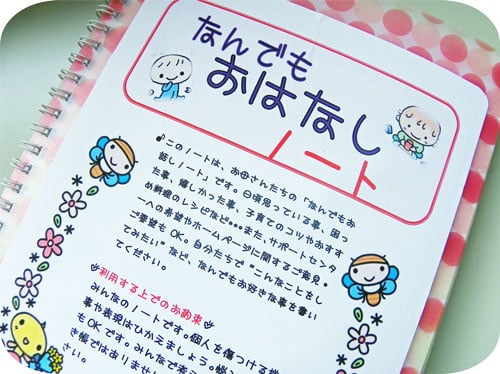 なんでも
おはなし
ノート
♪このノートは、お母さんたちの「なんでもお
話しノート」です。日頃思っている事、困っ
た事、嬉しかった事、子育てのコツやおすす
め料理のレシピなど・・・また、サポートセンタ
ーへの希望やホームページに関するご意見・
ご要望もOK。自分たちで"こんなことをし
てみたい"など、なんでもお好きな事を書い
てください。
利用する上でのお約束
みんなのノートです。個人を傷つける
事や表現はひかえましょう。
もOKです。みんなで
き帳ではありません
さい。